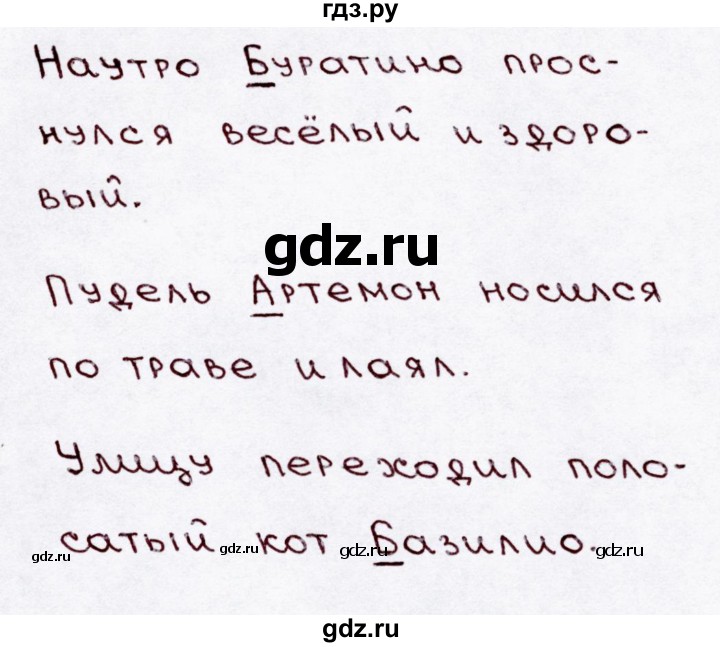 гдз.ру
Наутро Буратино прос-
нулся весёлый и здоро-
вый.
gdz.ru
Пудель Артемон носился
по траве и лаял.
Улицу переходил поло-
сатый кот Базилио.
gdz.ru gdz.ru gdz.ru gdz.ru
gdz.ru